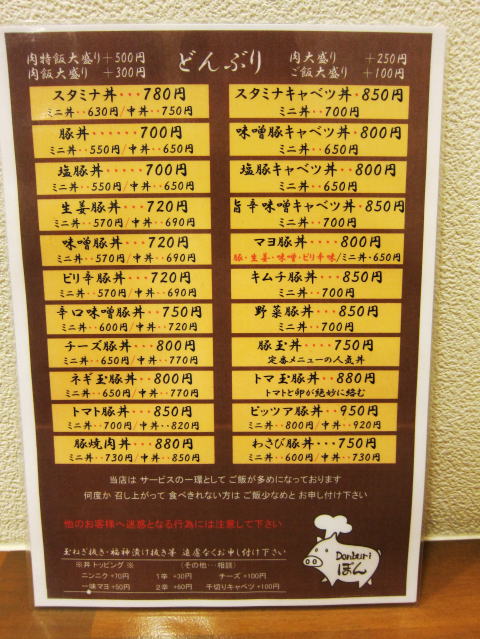 肉特飯大盛り +500円
肉飯大盛り +300円
どんぶり
肉大盛り +250円
ご飯大盛り +100円
スタミナ丼・・・780円
ミニ丼・・630円/中丼・・750円
豚丼・・・・・・700円
ミニ丼・・550円/中丼・・650円
塩豚丼・・・・・・700円
ミニ丼・・550円/中丼・・650円
生姜豚丼・・・720円
ミニ丼・・570円/中丼・・690円
味噌豚丼・・・720円
ミニ丼・・570円/中丼・・690円
ピリ辛豚丼・・・720円
ミニ丼・・570円/中丼・・690円
辛口味噌豚丼・・750円
ミニ丼・・600円/中丼・・720円
チーズ豚丼・・・800円
ミニ丼・・650円/中丼・・770円
ネギ玉豚丼・・800円
ミニ丼・・650円/中丼・・770円
トマト豚丼・・・850円
ミニ丼・・700円/中丼・・820円
豚焼肉丼・・・880円
ミニ丼・・730円/中丼・・850円
スタミナキャベツ丼・850円
ミニ丼・・700円
味噌豚キャベツ丼・・800円
ミニ丼・・650円
塩豚キャベツ丼・・800円
ミニ丼・・650円
旨辛味噌キャベツ丼・850円
ミニ丼・・700円
マヨ豚丼・・・・800円
豚・生姜・味噌・ピリ辛味/ミニ丼・650円
キムチ豚丼・・・850円
ミニ丼・・700円
野菜豚丼・・・850円
ミニ丼・・700円
豚玉丼・・・・750円
定番メニューの人気丼
トマ玉豚丼・・・880円
トマトと卵が絶妙に絡む
ピッツア豚丼・・950円
ミニ丼・・800円/中丼・・920円
わさび豚丼・・・750円
ミニ丼・・600円/中丼・・730円
当店は サービスの一環として ご飯が多めになっております
何度か 召し上がって 食べきれない方は ご飯少なめと お申し付け下さい
他のお客様へ迷惑となる行為には注意して下さい
玉ねぎ抜き・福神漬け抜き等 遠慮なくお申し付け下さい
※丼 トッピング ※ (その他・・・相談)
ニンニク +10円 1辛 +30円 チーズ +100円
一味マヨ +50円 2辛 +60円 千切りキャベツ +100円
Donburi
ぼん